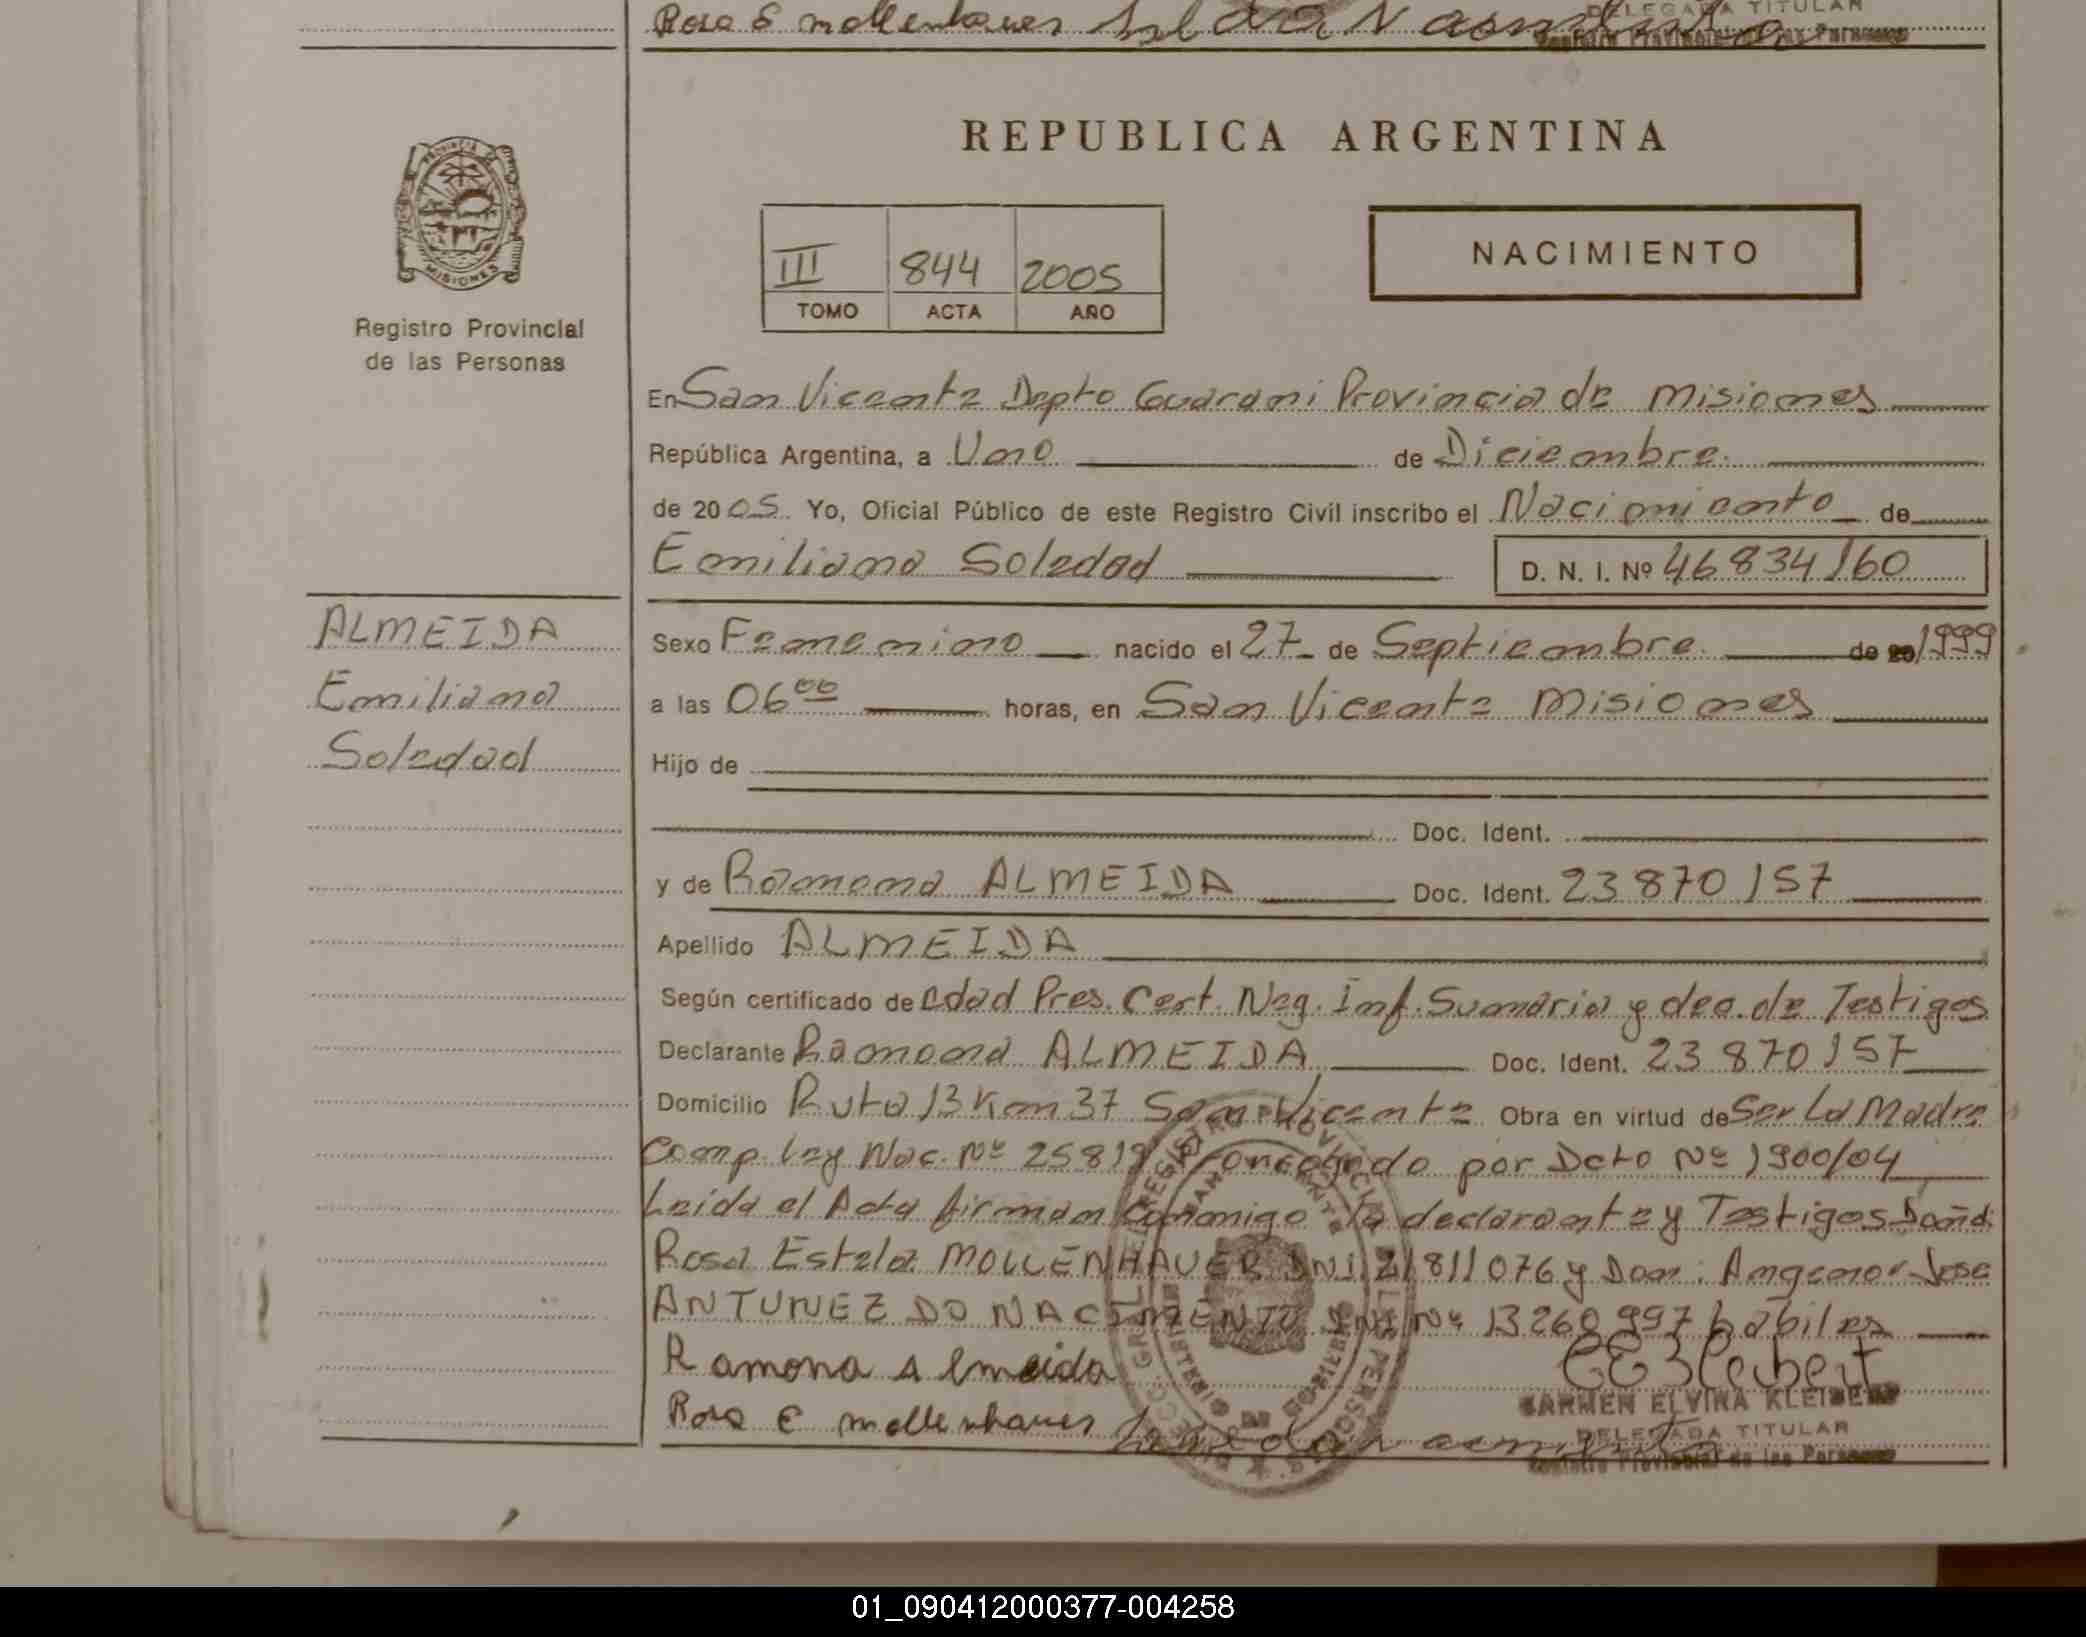 Rosa E mollenhauer
DELEGADA TITULAR
Registro Provincial de las Personas
REPUBLICA ARGENTINA
PROVINCIA DE
MISIONES
Registro Provincial
de las Personas
III 844 2005
TOMO ACTA AÑO
NACIMIENTO
En San Vicente Depto Guarani Provincia de Misiones
República Argentina, a Uno de Diciembre
de 2005 Yo, Oficial Público de este Registro Civil inscribo el Nacimiento de
Emiliana Soledad D. N. I. Nº 46834160
ALMEIDA
Emiliana
Soledad
Sexo Femenino nacido el 27 de Septiembre de 20 1999
a las 06 00 horas, en San Vicente Misiones
Hijo de
Doc. Ident.
y de Ramona ALMEIDA Doc. Ident. 23870157
Apellido ALMEIDA
Según certificado de edad Pres. Cert. Neg. Inf. Sumaria y dec. de Testigos
Declarante Ramona ALMEIDA Doc. Ident. 23870157
Domicilio Ruta 13 Km 37 San Vicente Obra en virtud de Ser La Madre
Comp. Ley Nac. Nº 25819 Prorrogado por Dcto Nº 1900/04
Leida el Acta firman Conmigo la declarante y Testigos Doña
Rosa Estela MOLLENHAUER DNI 21811076 y Don: Angenor Jose
ANTUNEZ DO NACIMENTO DNI Nº 13260997 habiles
Ramona Almeida
CARMEN ELVIRA KLEIBERT
Rosa E mollenhauer
DELEGADA TITULAR
Registro Provincial de las Personas
01_090412000377-004258